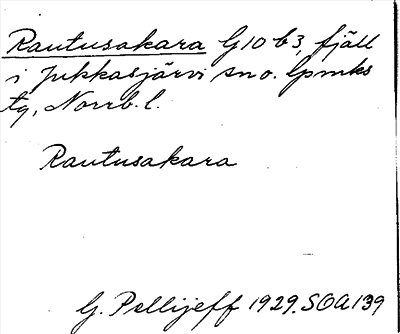 Rautusakara G10 b3, fjäll
i Jukkasjärvi sn o. lpmks
tg, Norrb. l.
Rautusakara
G. Pellijeff 1929. SOA 139